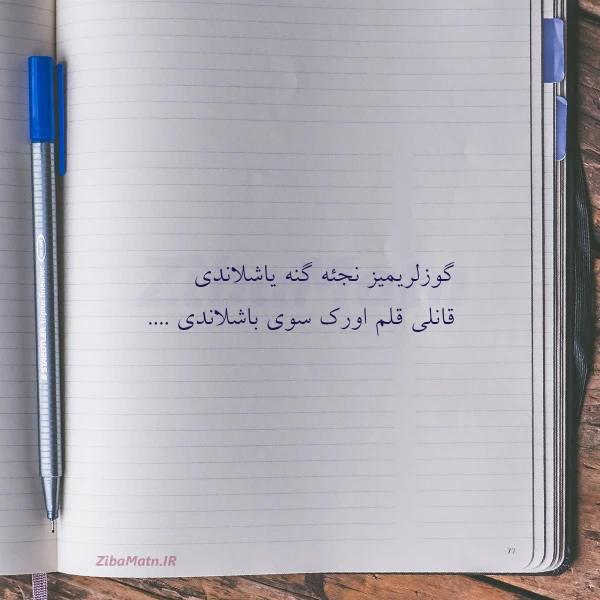 گوزلریمیز نجئه گنه یاشلاندی
قانلی قلم اورک سوی باشلاندی ....
77
ZibaMatn.IR